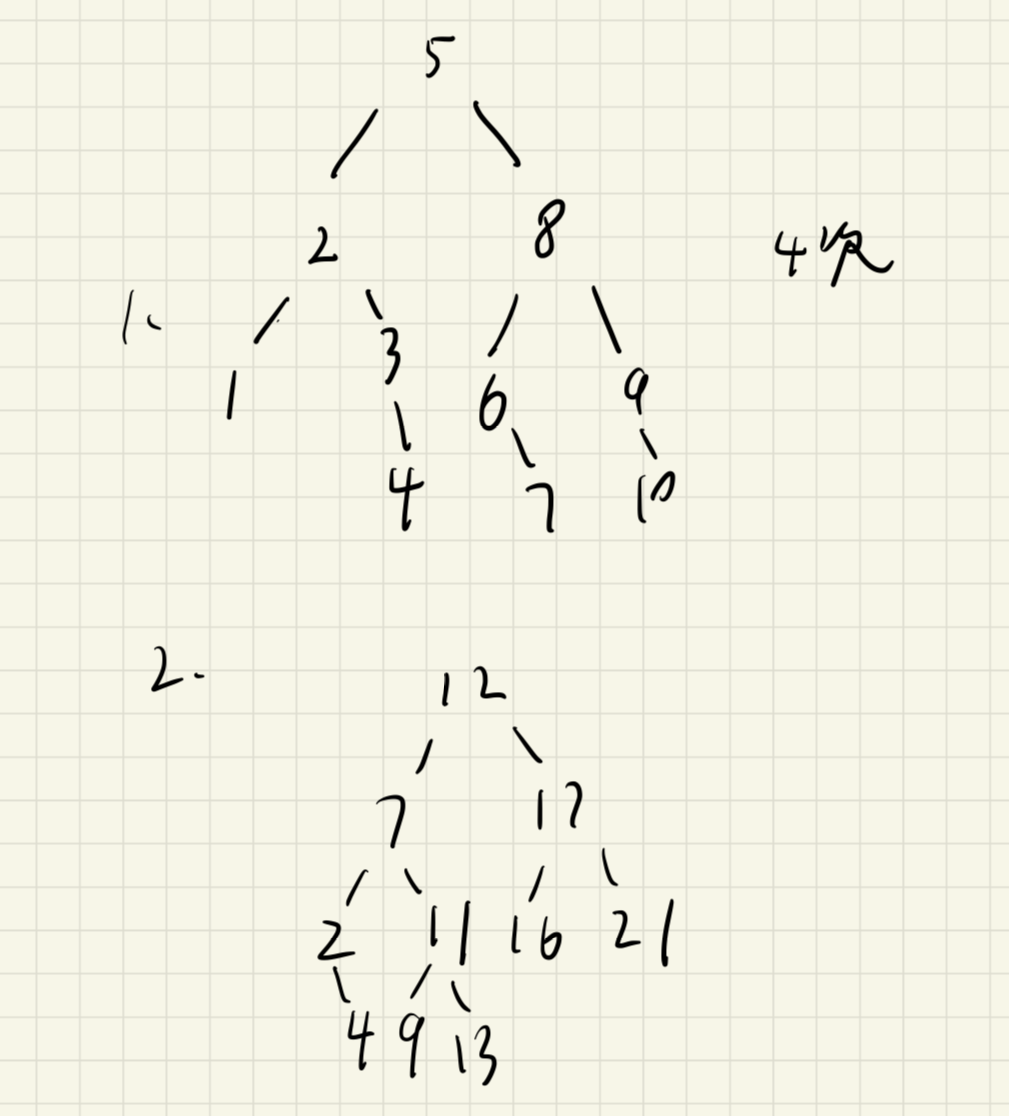 5
2 8
4次
1.
1 3 6 9
4 7 10
2.
12
7 17
2 11 16 21
4 9 13